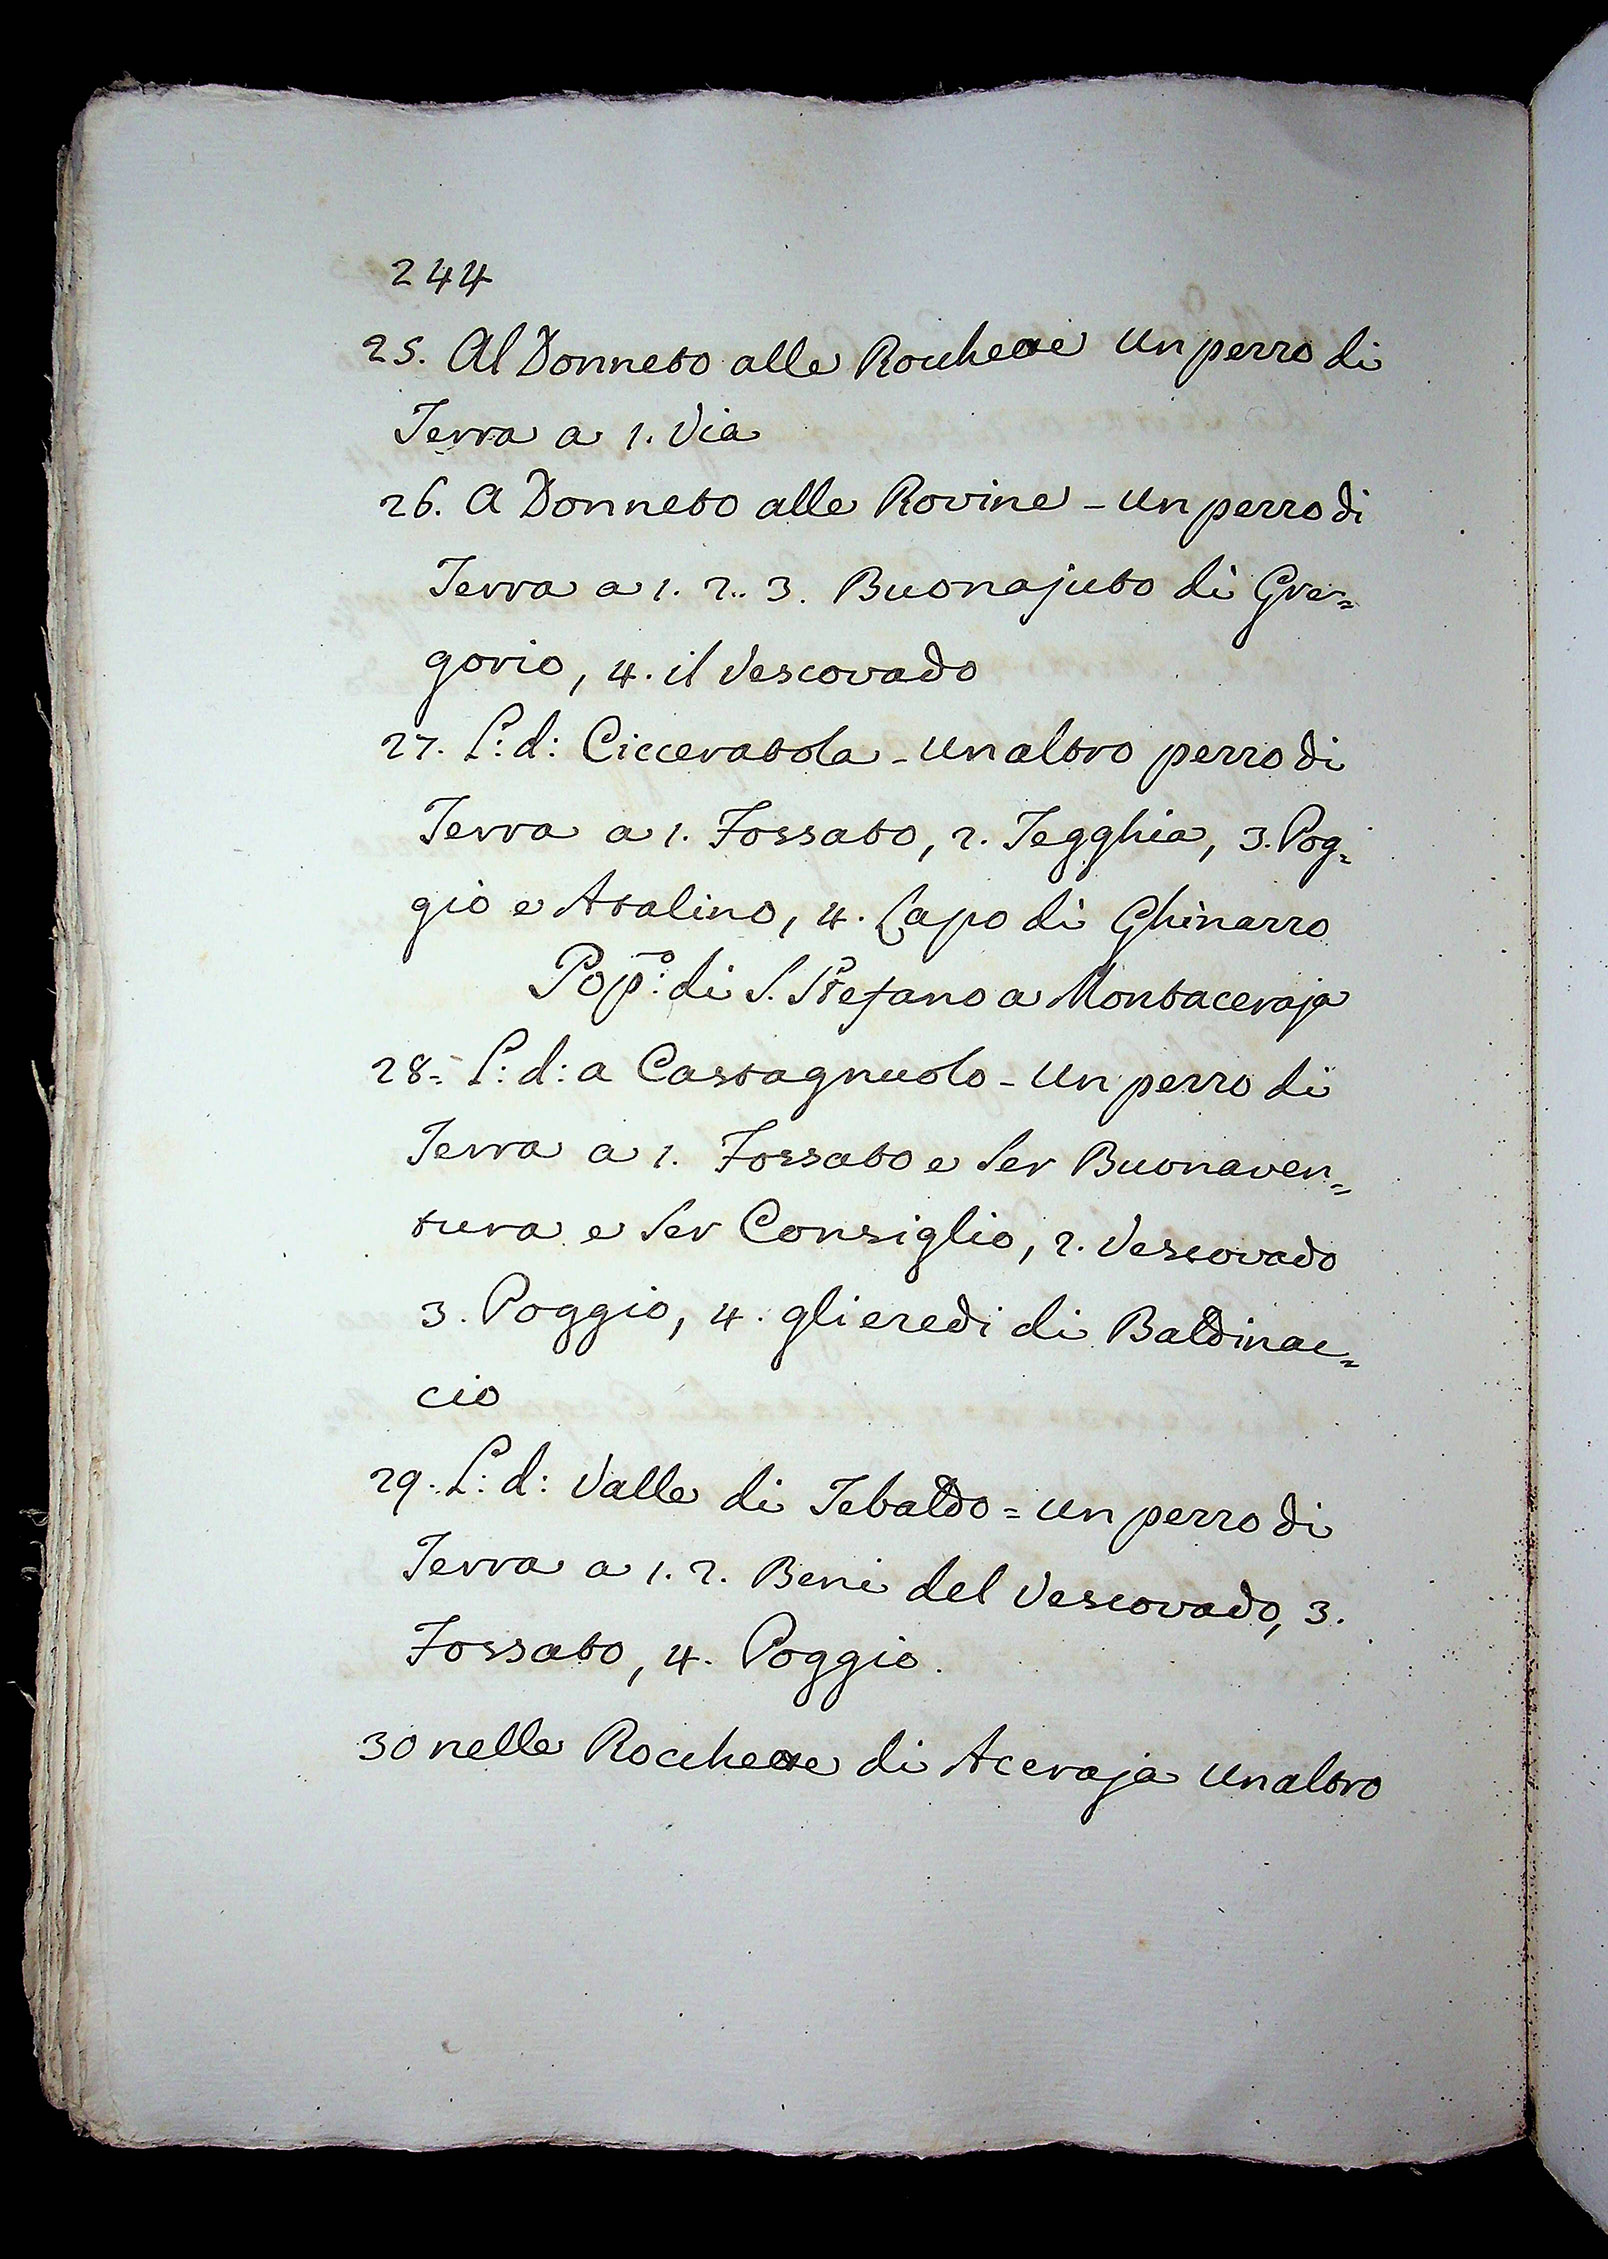 244
25. Al Donneto alle Rocchette un pezzo di
Terra a 1. Via
26. A Donneto alle Rovine - un pezzo di
Terra a 1. 2. 3. Buonajuto di Gre=
gorio, 4. il Vescovado
27. L: d: Cicceratola - un altro pezzo di
Terra a 1. Fossato, 2. Tegghia, 3. Pog=
gio e Atalino, 4. Capo di Ghinazzo
Pop.o: di S. Stefano a Montaceraja
28= L: d: a Castagnuolo - un pezzo di
Terra a 1. Fossato e Ser Buonaven=
tura e Ser Consiglio, 2. Vescovado
3. Poggio, 4. gli eredi di Baldinac=
cio
29. L: d: Valle di Tebaldo = un pezzo di
Terra a 1. 2. Beni del Vescovado, 3.
Fossato, 4. Poggio.
30 nelle Rocchette di Aceraja un altro